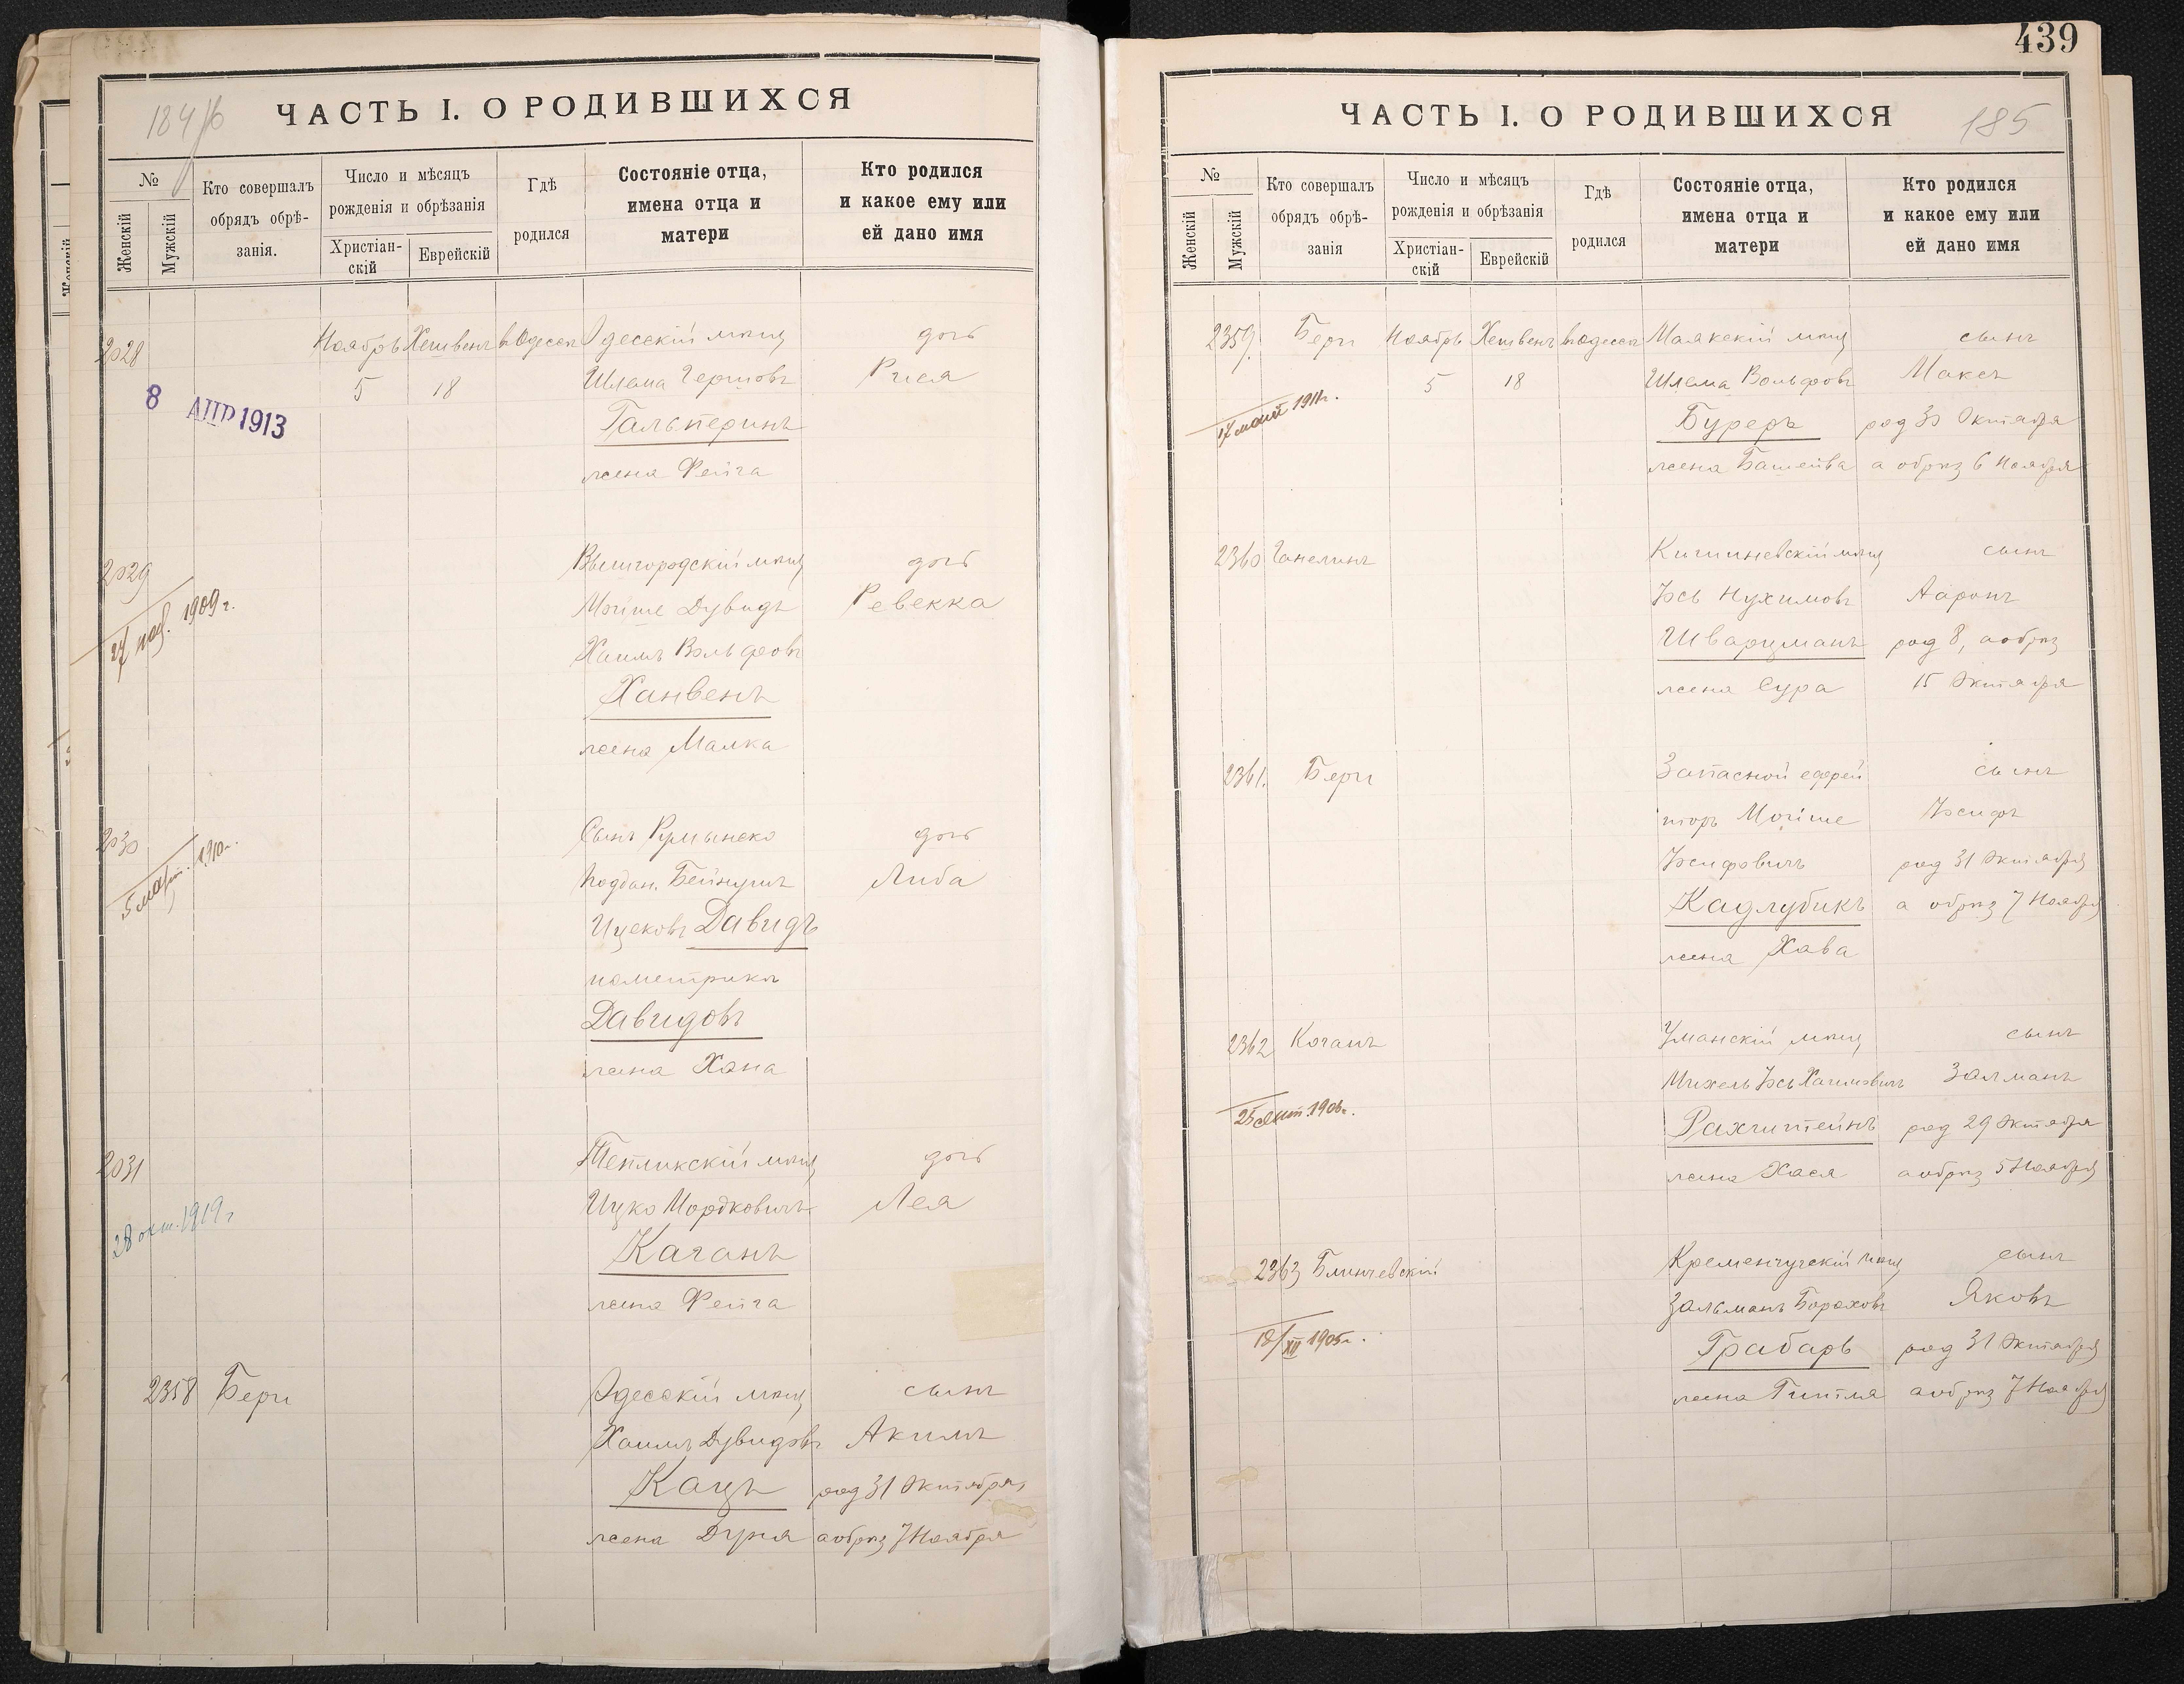 184/б
ЧАСТЬ I. О РОДИВШИХСЯ
№
Женскій
Мужскій
Кто совершалъ обрядъ обрѣ-занія.
Число и мѣсяцъ рожденія и обрѣзанія
Христіан-скій
Еврейскій
Гдѣ родился
Состояніе отца, имена отца и матери
Кто родился и какое ему или ей дано имя
2028 Ноябрь Хешвенъ въ Одессѣ Одесскій мѣщ дочь
5 18 Шлема Гершовъ Рися
8 АПР 1913
Гальперинъ
жена Фейга
2029 Вышгородскій мѣщ дочь
27 нояб. 1909 г.
Мойше Дувидъ Ревекка
Хаимъ Вольфовъ
Ханвенъ
жена Малка
2030 Сынъ Румынско дочь
5 март. 1910 г.
подан. Бейнушъ Либа
Ицековъ Давидъ
пометрикѣ
Давидовъ
жена Хана
2031 Тепликскій мѣщ дочь
28 окт. 1919 г
Ицко Мордковичъ Лея
Каганъ
жена Фейга
2358 Бери Одесскій мѣщ сынъ
Хаимъ Дувидовъ Акимъ
Кацъ род 31 Октября,
жена Дуня а обрѣз 7 Ноября
439
ЧАСТЬ I. О РОДИВШИХСЯ
185
№
Женскій
Мужскій
Кто совершалъ обрядъ обрѣ-занія
Число и мѣсяцъ рожденія и обрѣзанія
Христіан-скій
Еврейскій
Гдѣ родился
Состояніе отца, имена отца и матери
Кто родился и какое ему или ей дано имя
2359. Бери Ноябрь Хешвенъ въ Одессѣ Маякскій мѣщ сынъ
5 18 Шлема Вольфовъ Максъ
1911 г.
Буреръ род 30 Октября
жена Башейва а обрѣз 6 Ноября
2360 Ганелинъ Кишиневскій мѣщ сынъ
Іось Нухимовъ Ааронъ
Шварцманъ род 8, а обрѣз
жена Сура 15 Октября
2361. Бери Запасной ефрей сынъ
торъ Мойше Іосифъ
Іосифовичъ род 31 Октября
Кадлубикъ а обрѣз 7 Ноября
жена Хава
2362 Коганъ Уманскій мѣщ сынъ
Михель Іось Хаимовичъ Залманъ
25 сент. 1906 г.
Рахштейнъ род 29 Октября
жена Хася а обрѣз 5 Ноября
2363 Блинчевскій Кременчугскій мѣщ сынъ
Зальманъ Бороховъ Яковъ
18/XII 1905 г.
Грабарь род 31 Октября
жена Гитля а обрѣз 7 Ноября